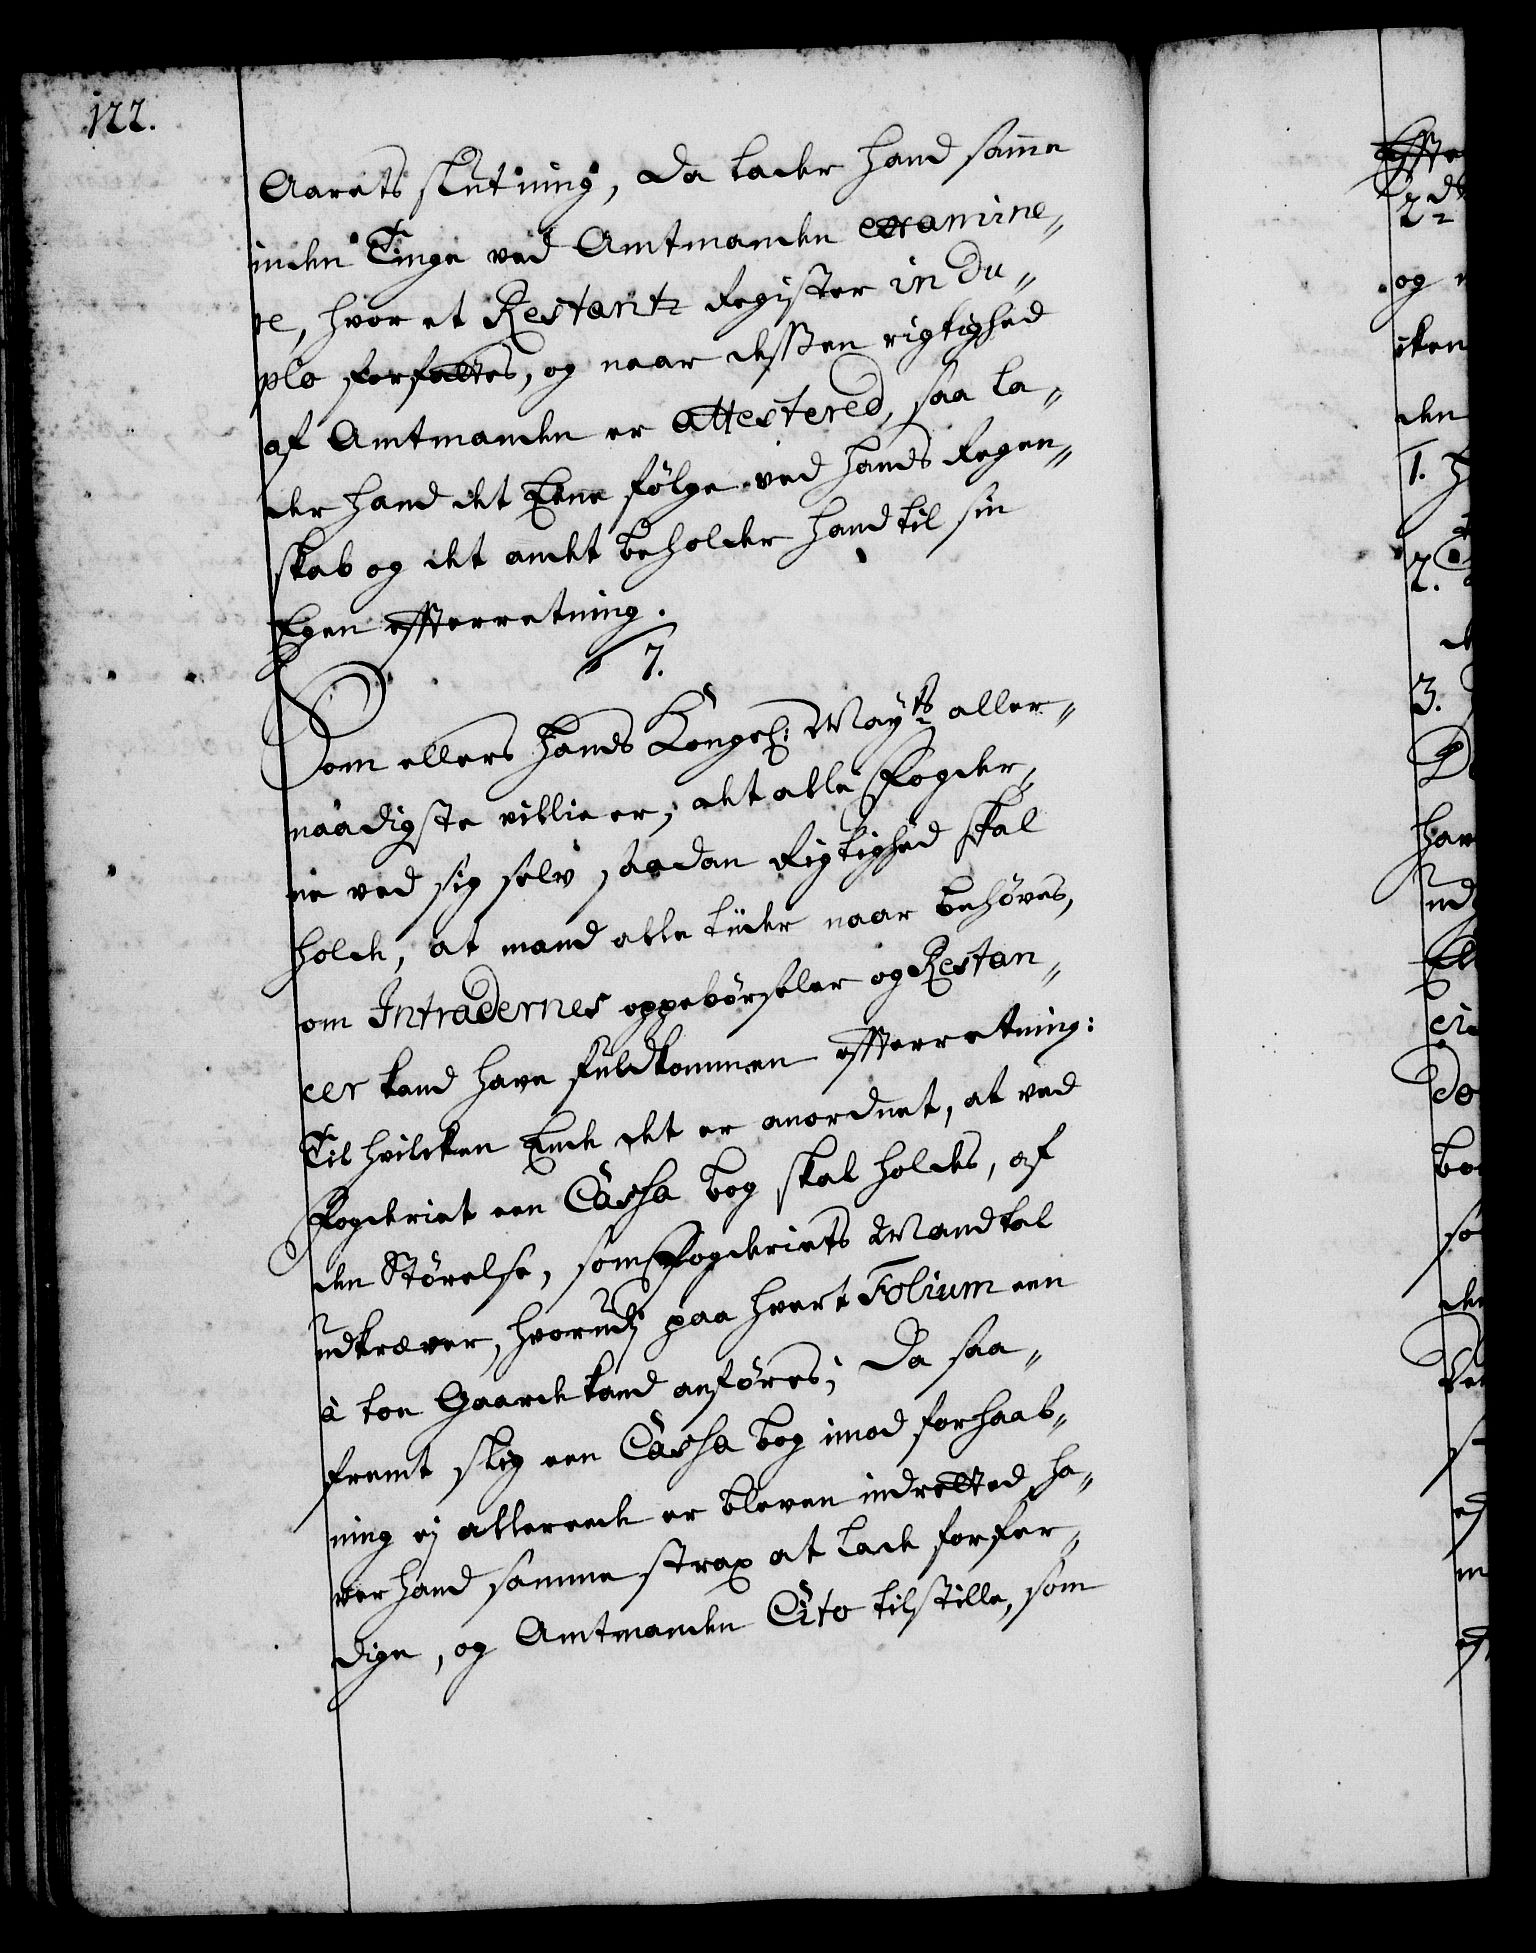 122.
Aarets slutning, da lader hand samme
inden Tinge ved Amtmanden examine„
re, hvor et Restantz Register in du„
plo forfattes, og naar dessen rigtighed
af Amtmanden er attestered, saa la„
der hand det Eene følge ved hands Regen„
skab og det andet beholder hand til sin
Egen effterretning.
7.
Som ellers Hands Kongel: Mayts aller„
naadigste villie er, at alle Fogder„
ne ved sig selv saadan Rigtighed skal
holde, at mand alle tiider naar behøves,
om Intradernes oppebørseler og Restan„
cer kand have fuldkommen effterretning:
Til hvilcken Ende det er anordnet, at ved
Fogderiet een Cassa bog skal holdes, af
den Størelse, som Fogderiets Mandtal
udkræver, hvorudj paa hvert Folium een
à toe Gaarde kand anføres; Da saa„
fremt slig een Cassa bog imod forhaab„
ning ej allereede er bleven indretted, ha„
ver hand samme strax at lade forfer„
dige, og Amtmanden Cito tilstille, som
2
og
den
1.
2.
3.